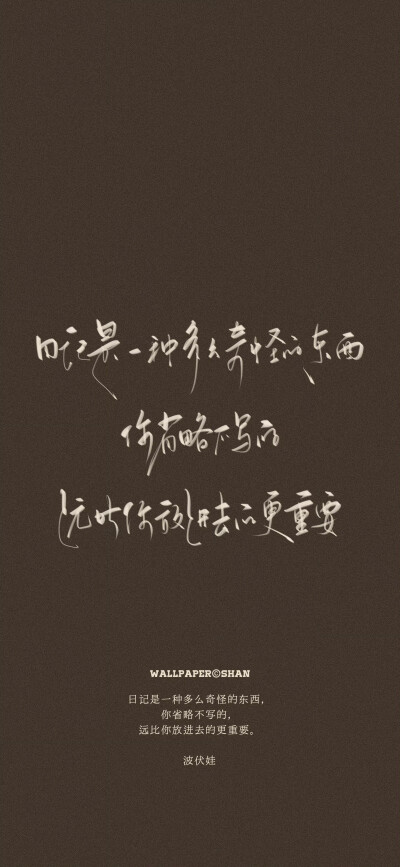 日记是一种多么奇怪的东西
你省略不写的
远比你放进去的更重要
WALLPAPER©SHAN
日记是一种多么奇怪的东西，
你省略不写的，
远比你放进去的更重要。
波伏娃